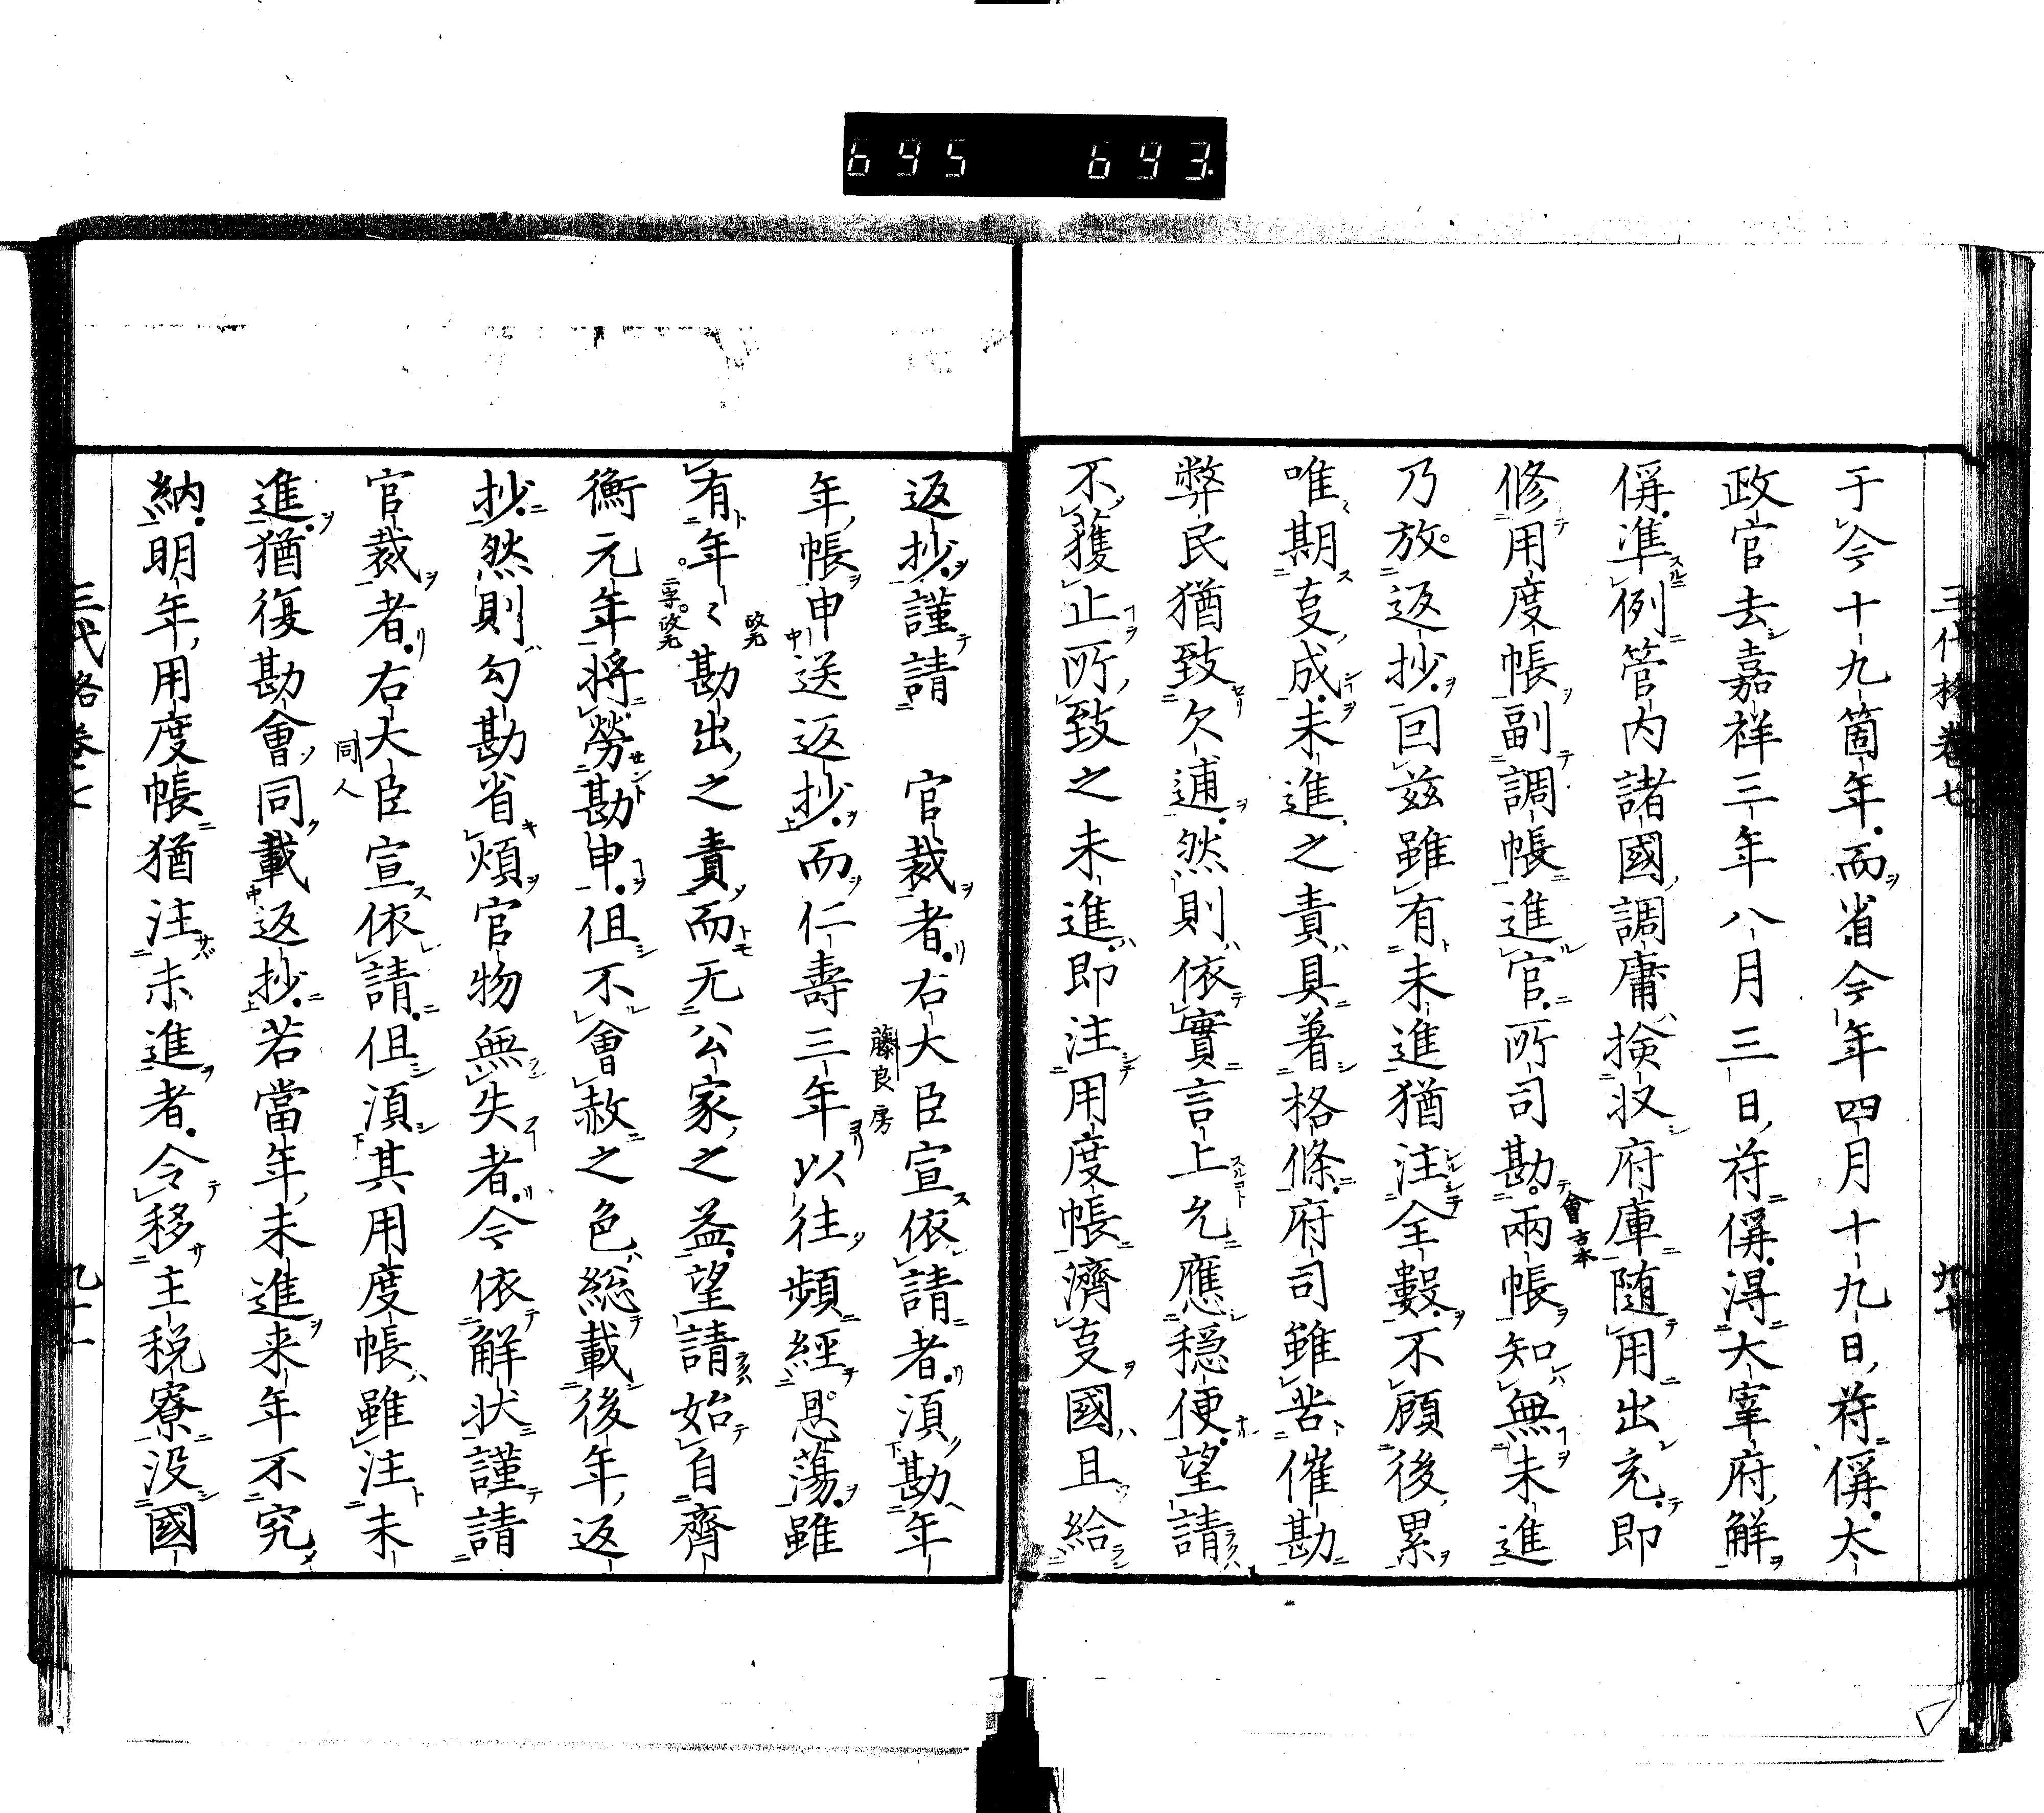 695 693
三代格卷七
九十
于今十九箇年而省今年四月十九日符偁太
政官去嘉祥三年八月三日符偁得大宰府解
偁準例管内諸國調庸撿收府庫随用出充即
修用度帳副調帳進官所司勘兩帳知無未進
會古本
乃放返抄回兹雖有未進猶注全數不顧後累
唯期㕝成未進之責具著格條府司雖苦催勘
弊民猶致欠逋然則依實言上允應穏便望請
不獲止所致之未進即注用度帳濟㕝國且給
返抄謹請　官裁者右大臣宣依請者湏勘年
藤良房
年帳申送返抄而仁壽三年以往頻經恩蕩雖
有年〻勘出之責而无公家之益望請始自齊
衡元年將勞勘申但不會赦之色総載後年返
抄然則勾勘省煩官物無失者今依解状謹請
官裁者右大臣宣依請但湏其用度帳雖注未
同人
進猶復勘會同載返抄若當年未進来年不究
納明年用度帳猶注未進者令移主税寮没國
三代格卷七
九十一